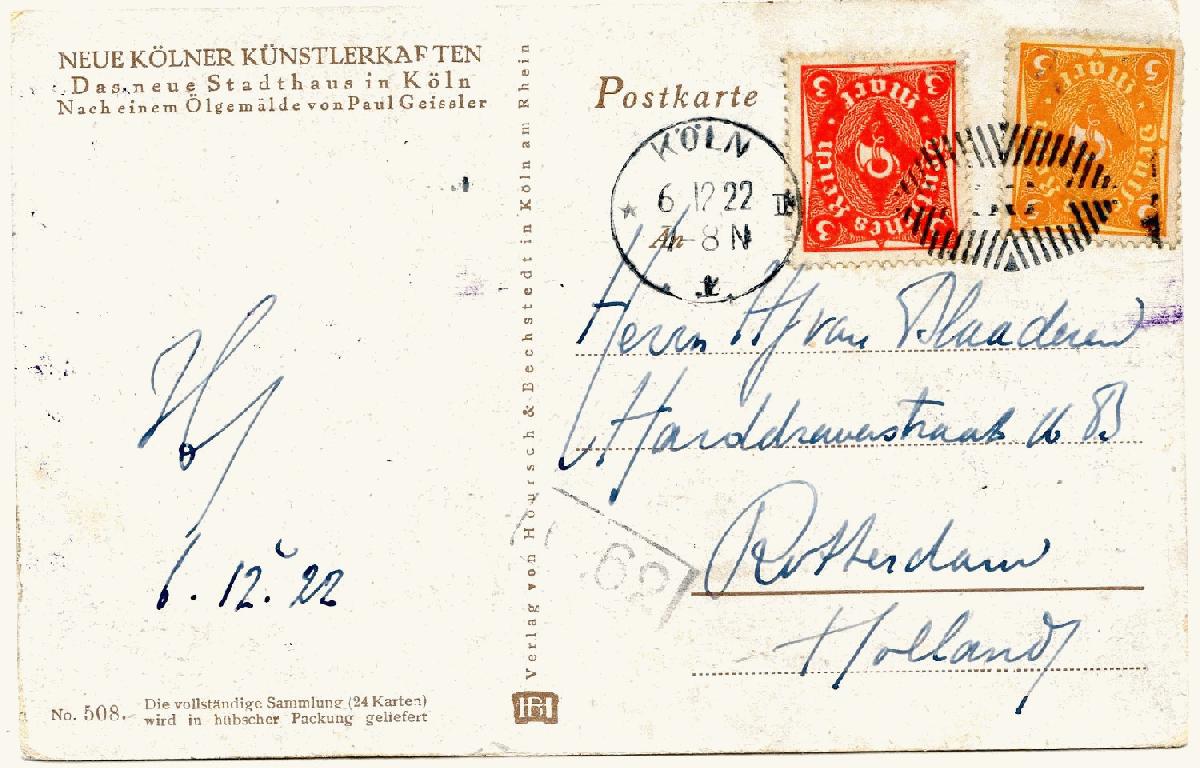 NEUE KÖLNER KÜNSTLERKARTEN
Das neue Stadthaus in Köln
Nach einem Ölgemälde von Paul Geissler
6. 12. 22
No. 508.
Die vollständige Sammlung (24 Karten)
wird in hübscher Packung geliefert
Verlag von Hoursch & Bechstedt in Köln am Rhein
Postkarte
KÖLN
6 12 22
4-8 N
An
3 Mark 3
Deutsches Reich
3
5 Mark 5
Deutsches Reich
5
Herrn HJ van Blaaderen
Harddraverstraat 16 B
Rotterdam
Holland
62